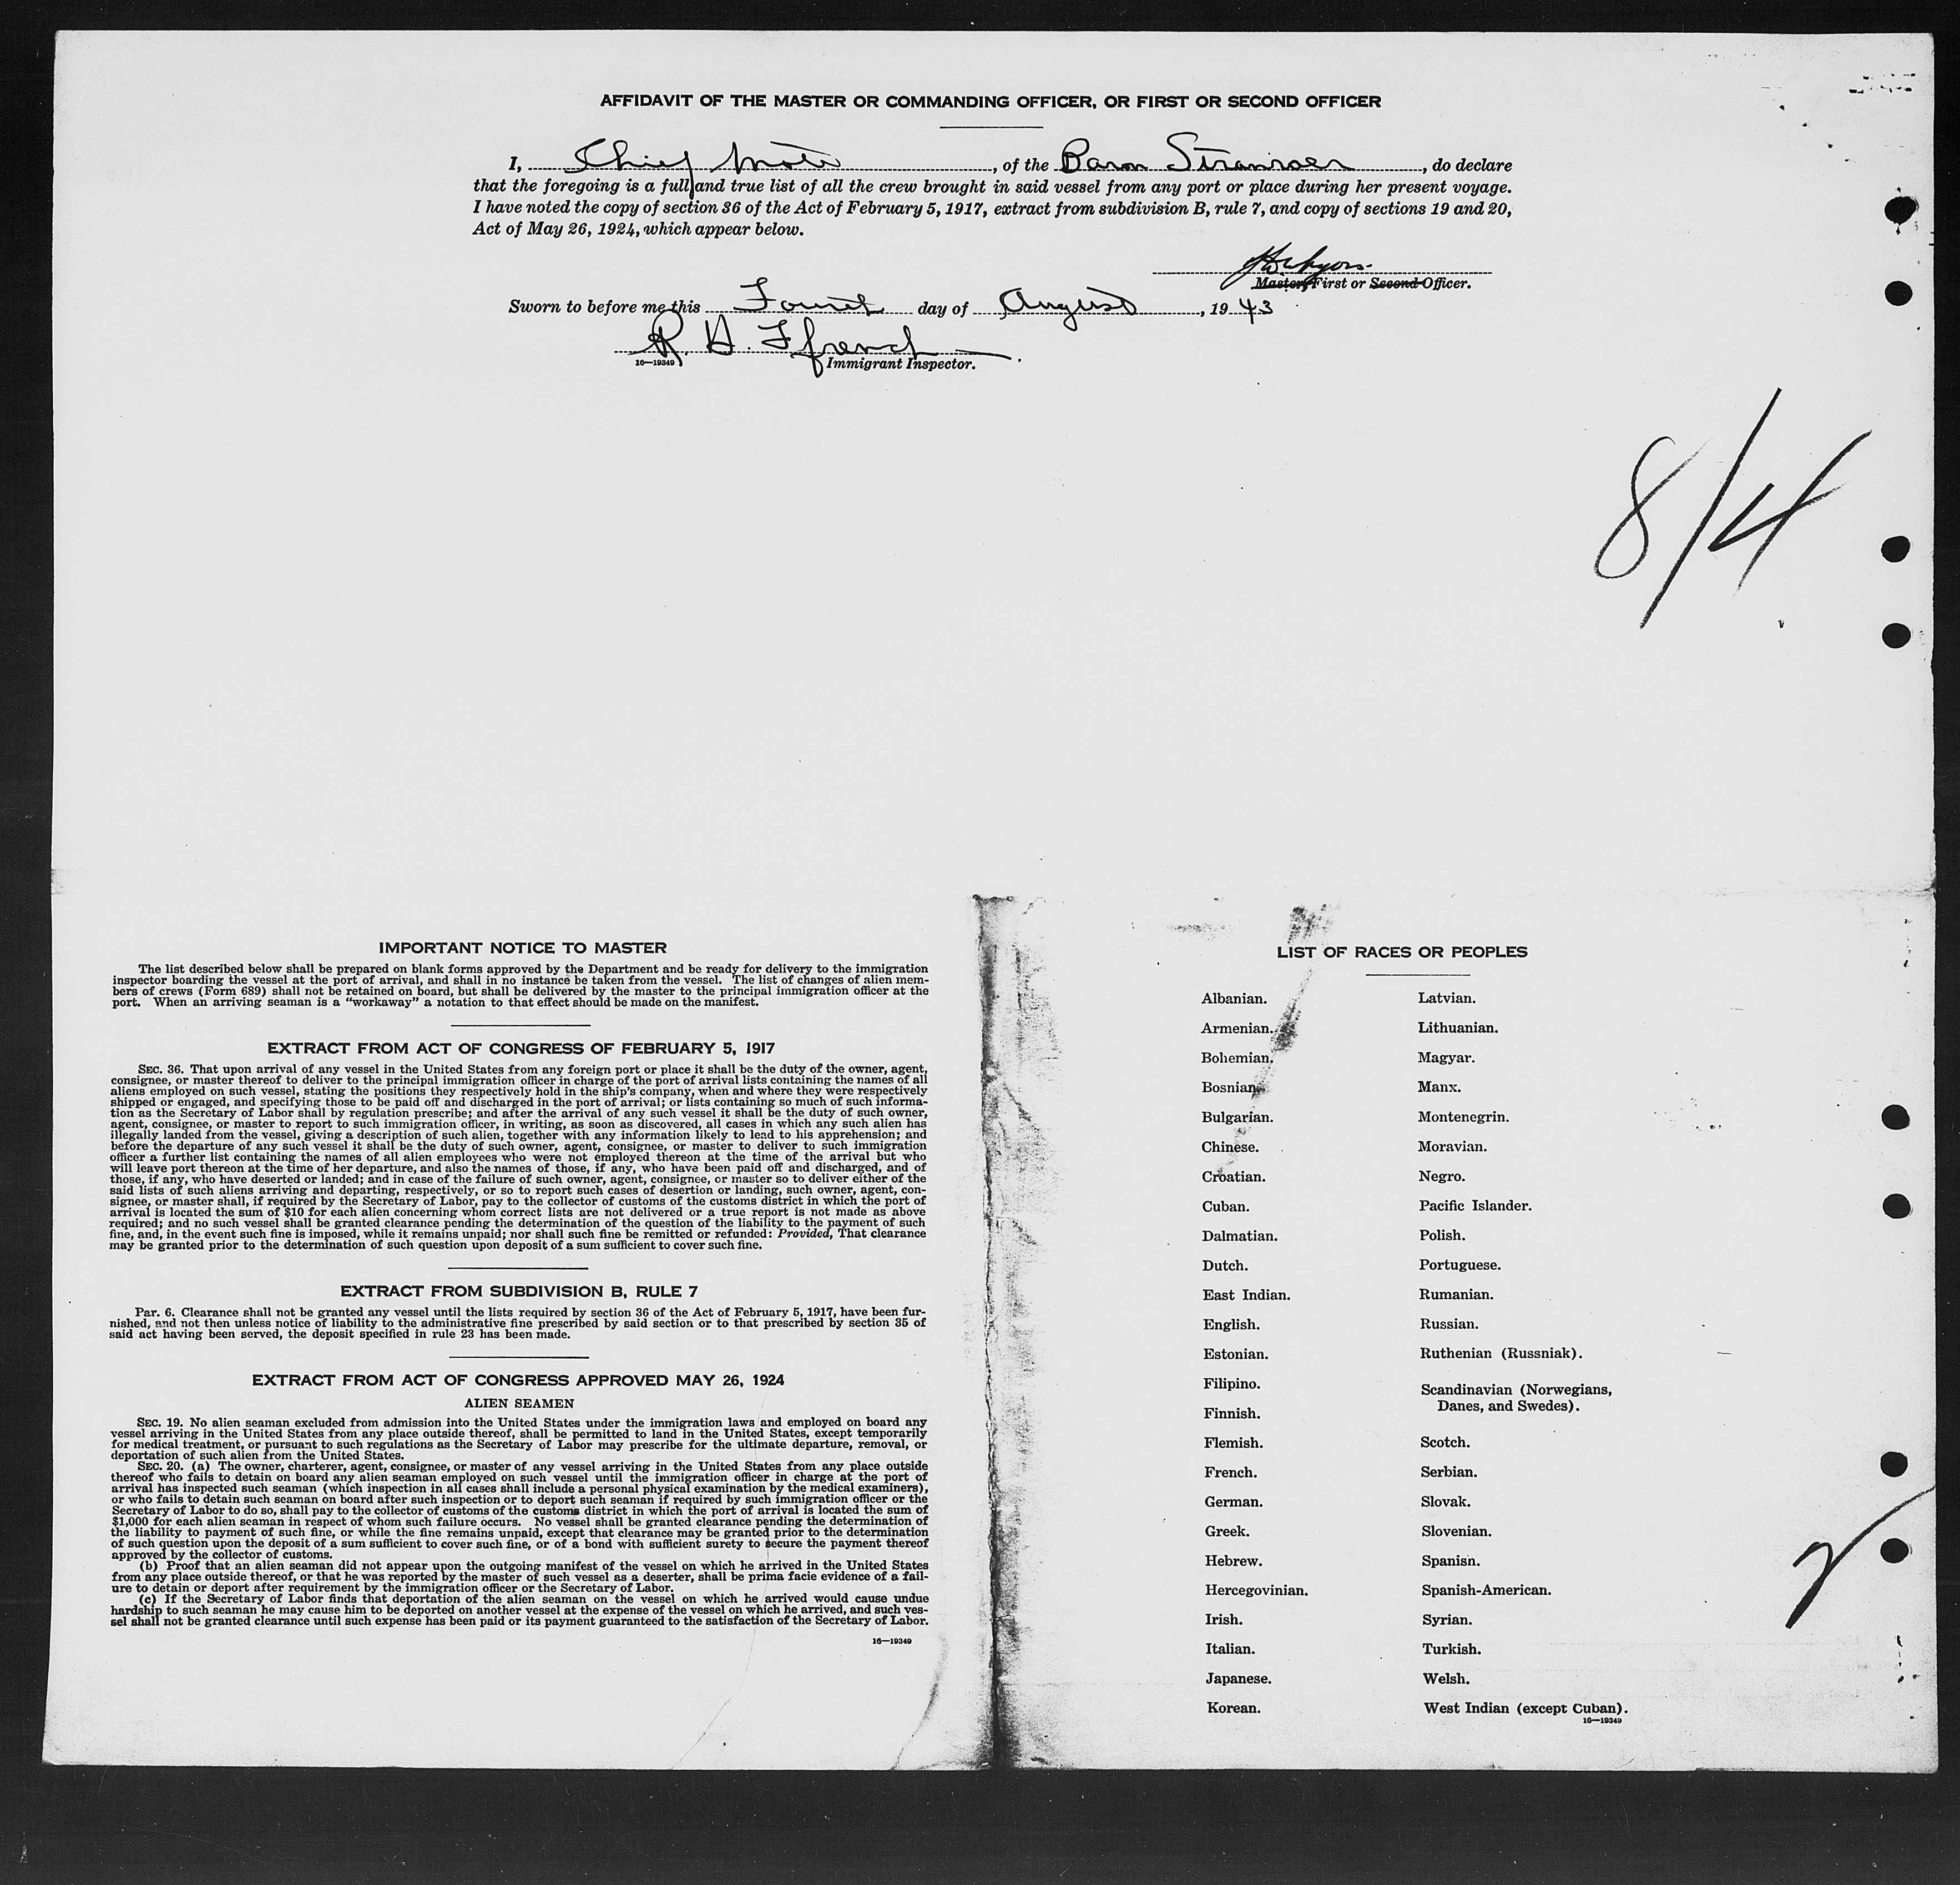 AFFIDAVIT OF THE MASTER OR COMMANDING OFFICER, OR FIRST OR SECOND OFFICER
I, Chief Mate, of the Baron Stranraer, do declare
that the foregoing is a full and true list of all the crew brought in said vessel from any port or place during her present voyage.
I have noted the copy of section 36 of the Act of February 5, 1917, extract from subdivision B, rule 7, and copy of sections 19 and 20,
Act of May 26, 1924, which appear below.
Master, First or Second Officer.
Sworn to before me this Fourth day of August, 1943
R. H. Ffrench
16—19349 Immigrant Inspector.
8/4
IMPORTANT NOTICE TO MASTER
The list described below shall be prepared on blank forms approved by the Department and be ready for delivery to the immigration
inspector boarding the vessel at the port of arrival, and shall in no instance be taken from the vessel. The list of changes of alien mem-
bers of crews (Form 689) shall not be retained on board, but shall be delivered by the master to the principal immigration officer at the
port. When an arriving seaman is a "workaway" a notation to that effect should be made on the manifest.
EXTRACT FROM ACT OF CONGRESS OF FEBRUARY 5, 1917
SEC. 36. That upon arrival of any vessel in the United States from any foreign port or place it shall be the duty of the owner, agent,
consignee, or master thereof to deliver to the principal immigration officer in charge of the port of arrival lists containing the names of all
aliens employed on such vessel, stating the positions they respectively hold in the ship's company, when and where they were respectively
shipped or engaged, and specifying those to be paid off and discharged in the port of arrival; or lists containing so much of such informa-
tion as the Secretary of Labor shall by regulation prescribe; and after the arrival of any such vessel it shall be the duty of such owner,
agent, consignee, or master to report to such immigration officer, in writing, as soon as discovered, all cases in which any such alien has
illegally landed from the vessel, giving a description of such alien, together with any information likely to lead to his apprehension; and
before the departure of any such vessel it shall be the duty of such owner, agent, consignee, or master to deliver to such immigration
officer a further list containing the names of all alien employees who were not employed thereon at the time of the arrival but who
will leave port thereon at the time of her departure, and also the names of those, if any, who have been paid off and discharged, and of
those, if any, who have deserted or landed; and in case of the failure of such owner, agent, consignee, or master so to deliver either of the
said lists of such aliens arriving and departing, respectively, or so to report such cases of desertion or landing, such owner, agent, con-
signee, or master shall, if required by the Secretary of Labor, pay to the collector of customs of the customs district in which the port of
arrival is located the sum of $10 for each alien concerning whom correct lists are not delivered or a true report is not made as above
required; and no such vessel shall be granted clearance pending the determination of the question of the liability to the payment of such
fine, and, in the event such fine is imposed, while it remains unpaid; nor shall such fine be remitted or refunded: Provided, That clearance
may be granted prior to the determination of such question upon deposit of a sum sufficient to cover such fine.
EXTRACT FROM SUBDIVISION B, RULE 7
Par. 6. Clearance shall not be granted any vessel until the lists required by section 36 of the Act of February 5, 1917, have been fur-
nished, and not then unless notice of liability to the administrative fine prescribed by said section or to that prescribed by section 35 of
said act having been served, the deposit specified in rule 23 has been made.
EXTRACT FROM ACT OF CONGRESS APPROVED MAY 26, 1924
ALIEN SEAMEN
SEC. 19. No alien seaman excluded from admission into the United States under the immigration laws and employed on board any
vessel arriving in the United States from any place outside thereof, shall be permitted to land in the United States, except temporarily
for medical treatment, or pursuant to such regulations as the Secretary of Labor may prescribe for the ultimate departure, removal, or
deportation of such alien from the United States.
SEC. 20. (a) The owner, charterer, agent, consignee, or master of any vessel arriving in the United States from any place outside
thereof who fails to detain on board any alien seaman employed on such vessel until the immigration officer in charge at the port of
arrival has inspected such seaman (which inspection in all cases shall include a personal physical examination by the medical examiners),
or who fails to detain such seaman on board after such inspection or to deport such seaman if required by such immigration officer or the
Secretary of Labor to do so, shall pay to the collector of customs of the customs district in which the port of arrival is located the sum of
$1,000 for each alien seaman in respect of whom such failure occurs. No vessel shall be granted clearance pending the determination of
the liability to payment of such fine, or while the fine remains unpaid, except that clearance may be granted prior to the determination
of such question upon the deposit of a sum sufficient to cover such fine, or of a bond with sufficient surety to secure the payment thereof
approved by the collector of customs.
(b) Proof that an alien seaman did not appear upon the outgoing manifest of the vessel on which he arrived in the United States
from any place outside thereof, or that he was reported by the master of such vessel as a deserter, shall be prima facie evidence of a fail-
ure to detain or deport after requirement by the immigration officer or the Secretary of Labor.
(c) If the Secretary of Labor finds that deportation of the alien seaman on the vessel on which he arrived would cause undue
hardship to such seaman he may cause him to be deported on another vessel at the expense of the vessel on which he arrived, and such ves-
sel shall not be granted clearance until such expense has been paid or its payment guaranteed to the satisfaction of the Secretary of Labor.
16—19349
LIST OF RACES OR PEOPLES
Albanian.
Armenian.
Bohemian.
Bosnian.
Bulgarian.
Chinese.
Croatian.
Cuban.
Dalmatian.
Dutch.
East Indian.
English.
Estonian.
Filipino.
Finnish.
Flemish.
French.
German.
Greek.
Hebrew.
Hercegovinian.
Irish.
Italian.
Japanese.
Korean.
Latvian.
Lithuanian.
Magyar.
Manx.
Montenegrin.
Moravian.
Negro.
Pacific Islander.
Polish.
Portuguese.
Rumanian.
Russian.
Ruthenian (Russniak).
Scandinavian (Norwegians,
Danes, and Swedes).
Scotch.
Serbian.
Slovak.
Slovenian.
Spanish.
Spanish-American.
Syrian.
Turkish.
Welsh.
West Indian (except Cuban).
16—19349